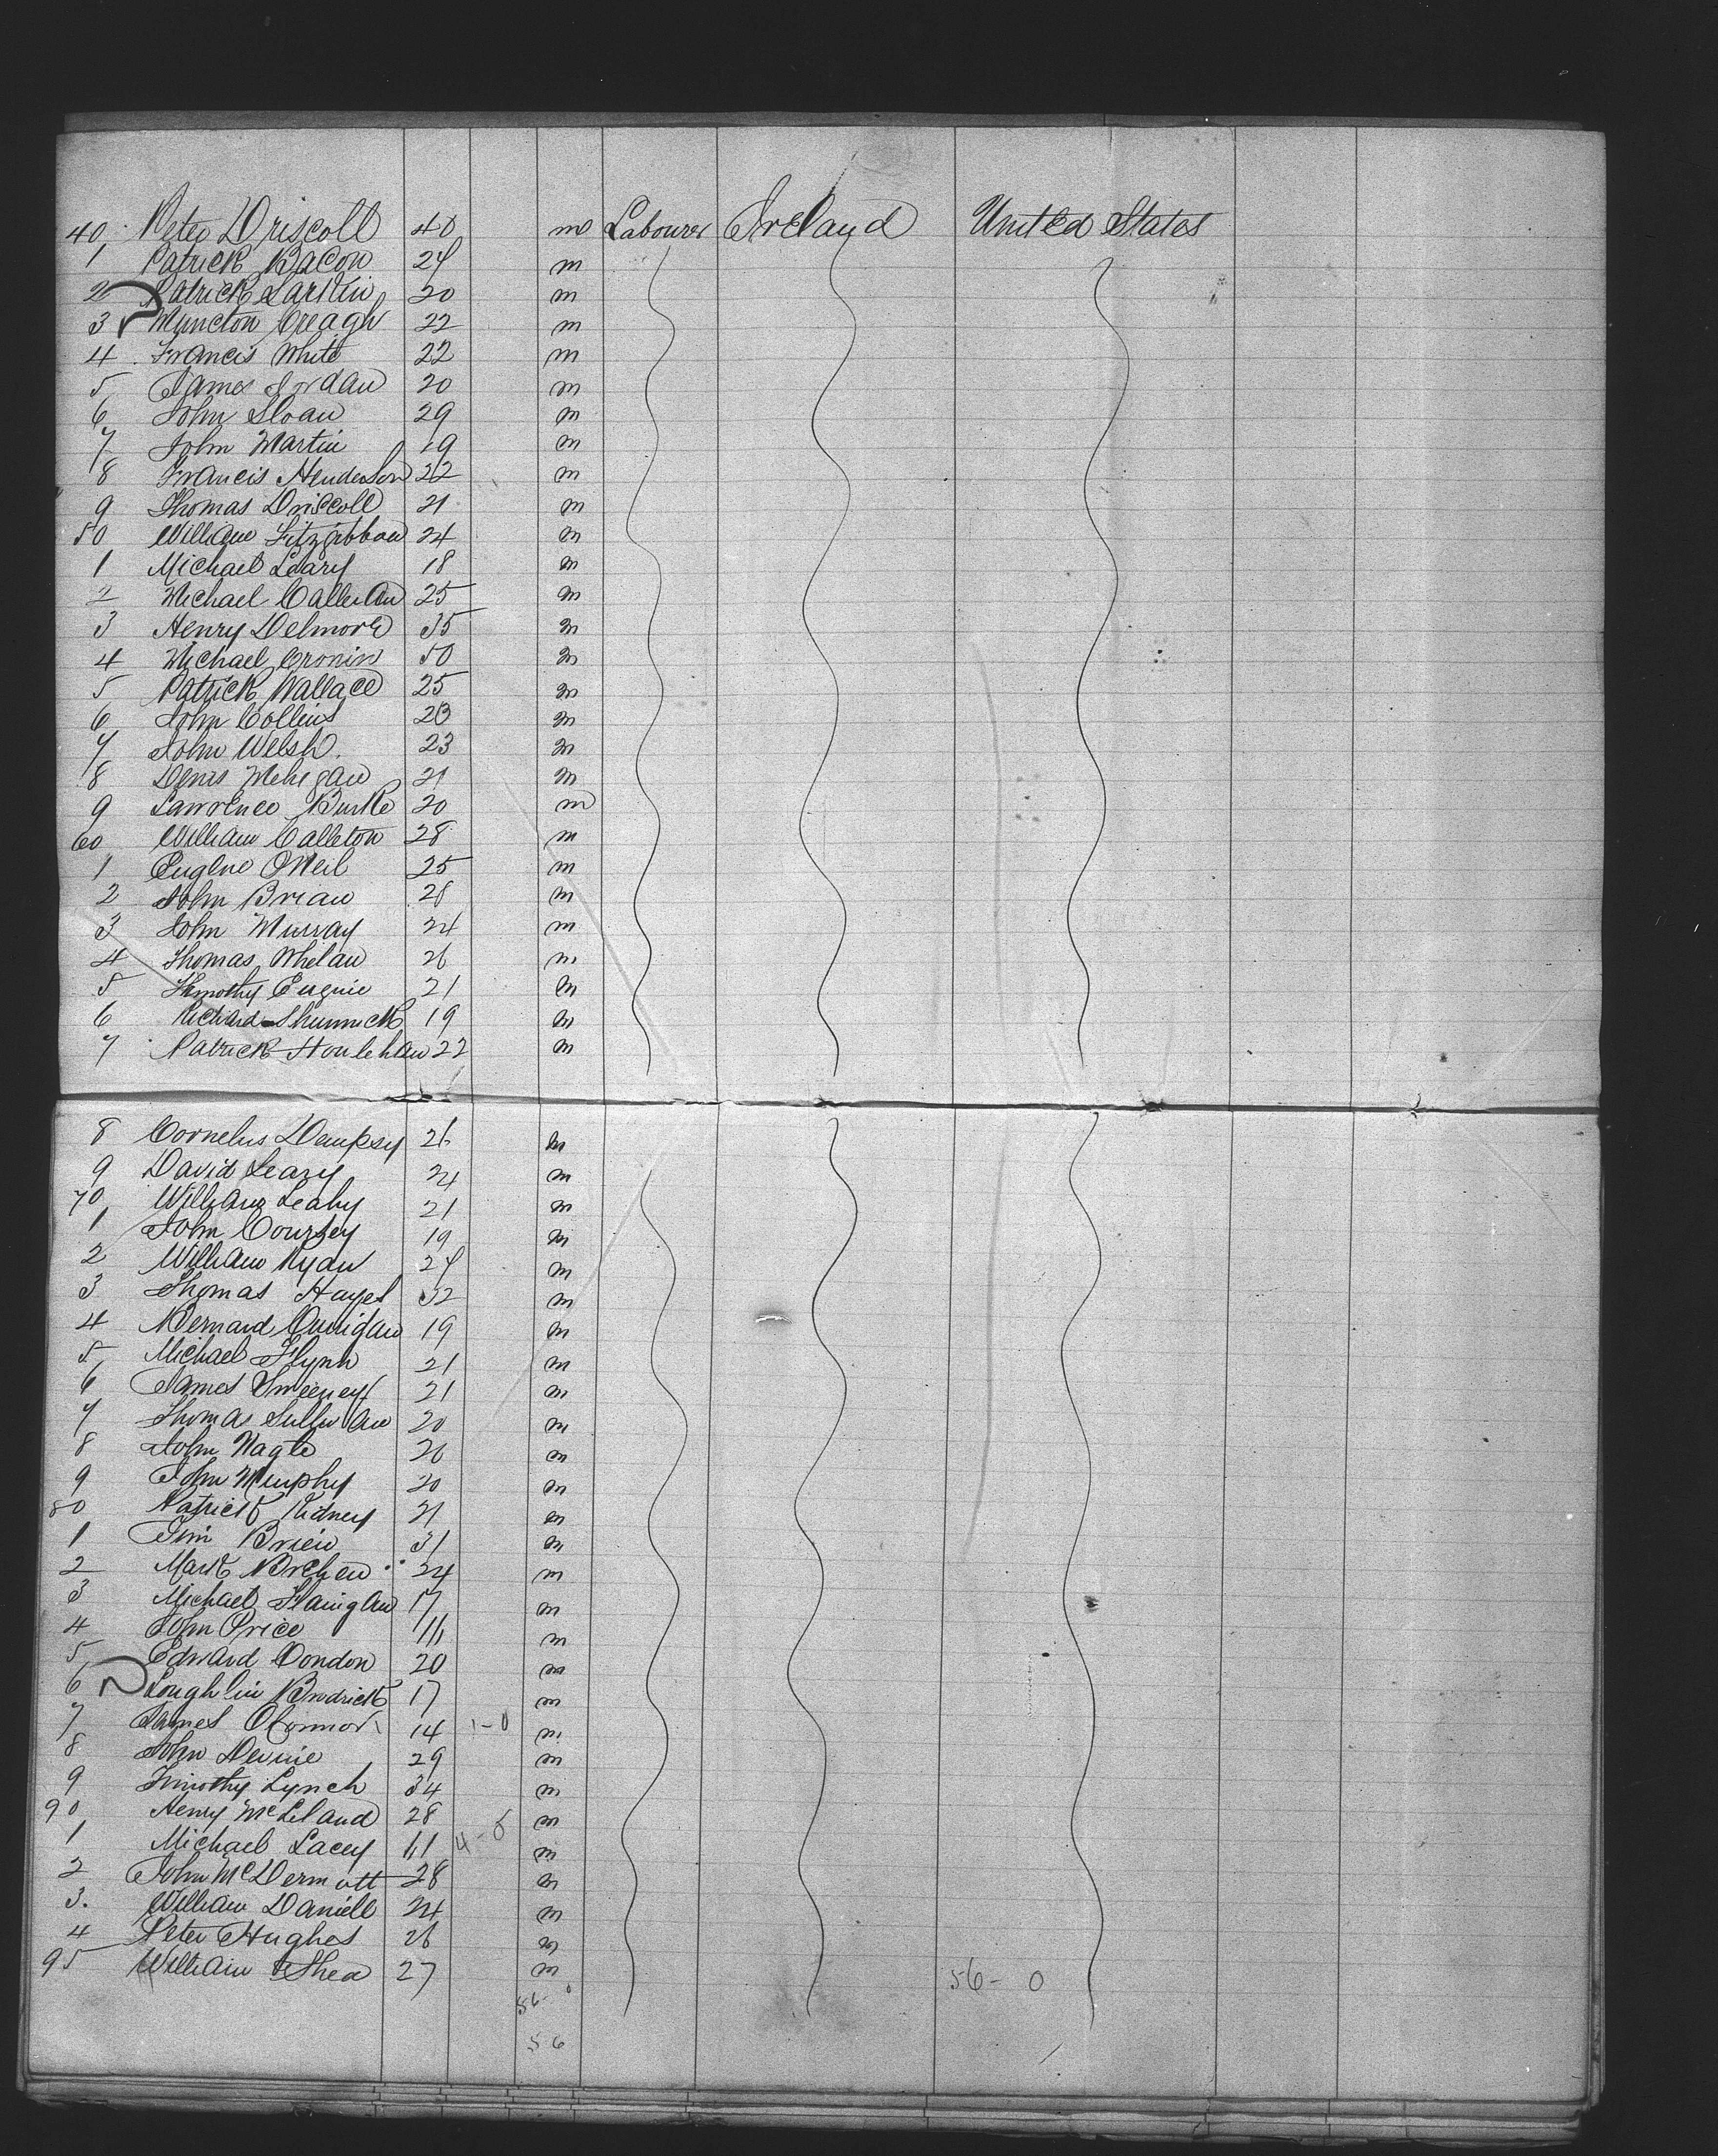 40 Peter Driscoll 40 m Labourer Ireland United States
1 Patrick Bacon 24 m
2 Patrick Larkin 20 m
3 Creagh 22 m
4 Francis White 22 m
5 James Jordan 20 m
6 John Sloan 29 m
7 John Martin 19 m
8 Francis Henderson 22 m
9 Thomas Driscoll 21 m
50 William Fitzgibbon 24 m
1 Michael Leary 18 m
2 Michael 25 m
3 Henry Delmore 35 m
4 Michael Cronin 50 m
5 Patrick Wallace 25 m
6 John Collins m
7 John Welsh. 23 m
8 Denis Mehegan 21 m
9 Lawrence Burke 20 m
60 William Calleton 28 m
1 Eugene ONeil 25 m
2 John Brian 28 m
3 John Murray 24 m
4 Thomas Whelan 26 m
5 Timothy 21 m
6 Richard 19 m
7 Patrick Houlehan 22 m
8 Cornelus Dempsy 26 m
9 David Leary 24 m
70 William Leahy 21 m
1 John Coursey 19 m
2 William Ryan 24 m
3 Thomas Hayes 32 m
4 Bernard 19 m
5 Michael Flynn 21 m
6 James Sweeney 21 m
7 Thomas Sullivan 20 m
8 John Nagle m
9 John Murphy 20 m
80 Patrick Kidney 21 m
1 Tim Brien 31 m
2 Mark 24 m
3 Michael 17 m
4 John Price m
5 Edward Condon 20 m
6 Loughlin Brodrick 17 m
7 James OConnor 14 1-0 m
8 John Devine 29 m
9 Timothy Lynch 34 m
90 Henry McLeland 28 m
1 Michael Lacey m
2 John McDermott 28 m
3. William Daniell 24 m
4 Peter Hughes 26 m
95 William Shea 27 m 56- 0
56- 0
56